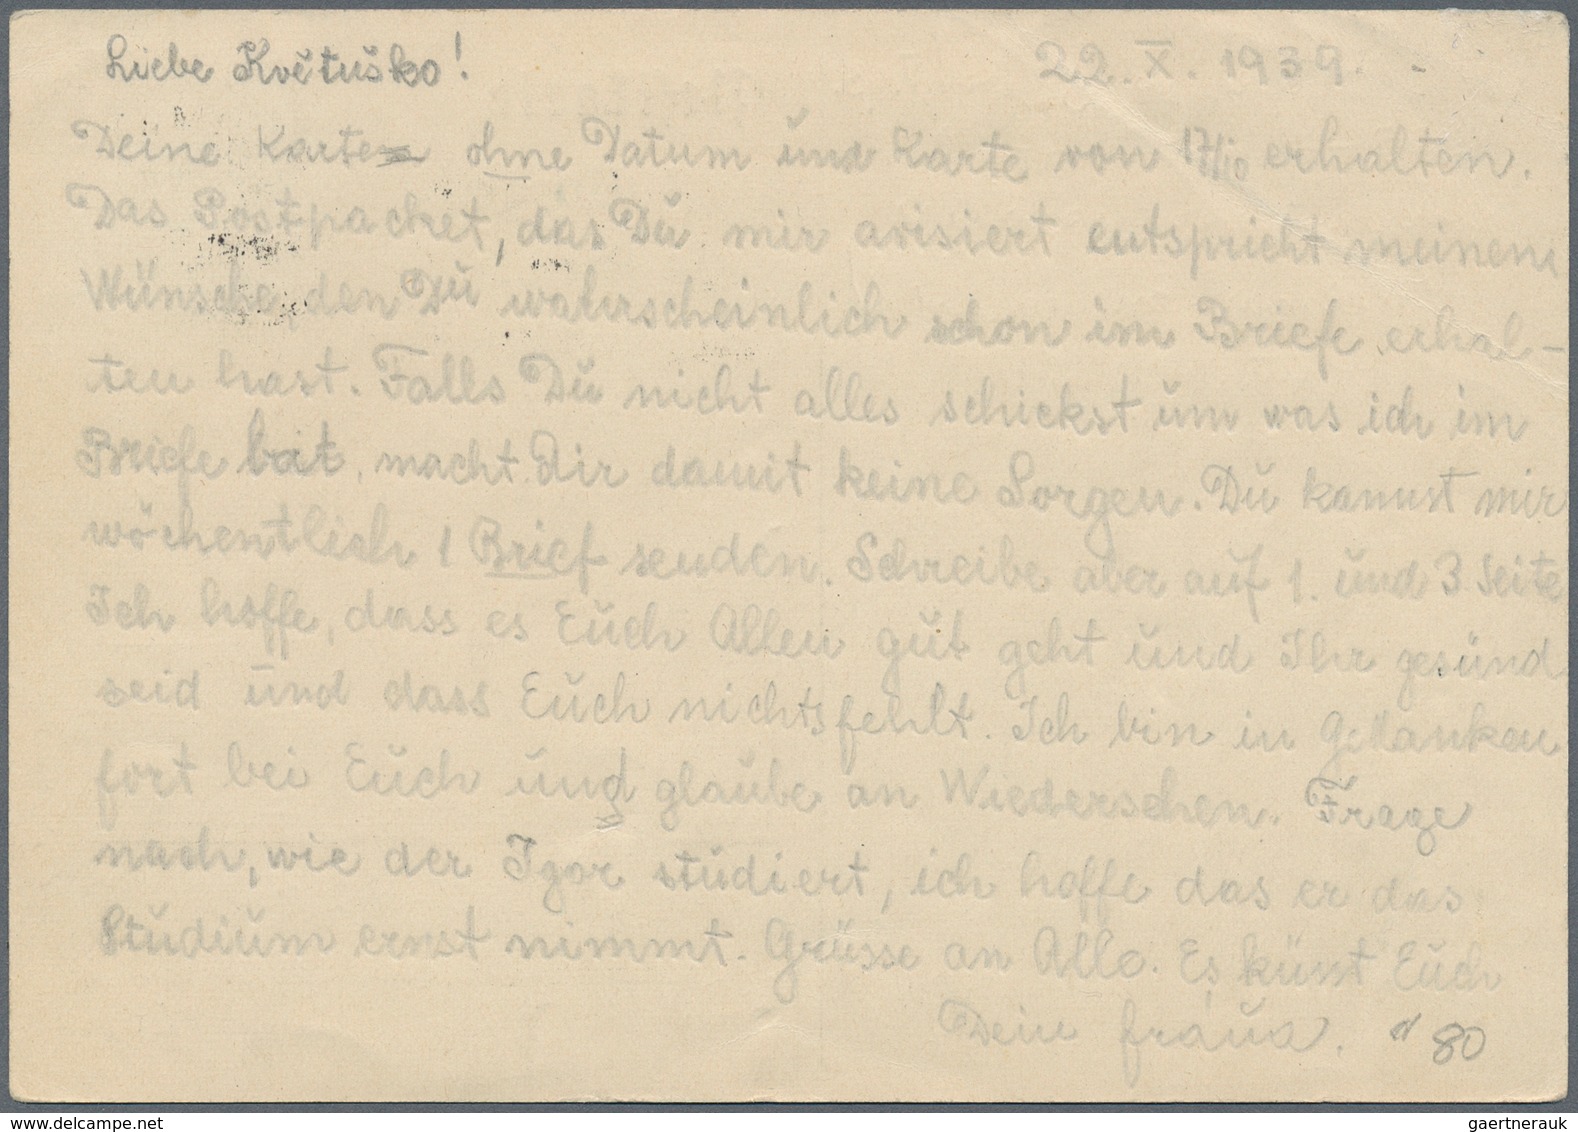 Liebe Květuško! 22. X. 1939.
Deine Karte ohne Datum und Karte von 17/10 erhalten.
Das Postpacket, das Du mir avisiert entspricht meinem
Wünsche, den Du wahrscheinlich schon im Briefe erhal-
ten hast. Falls Du nicht alles schickst um was ich im
Briefe bat, macht Dir damit keine Sorgen. Du kannst mir
wöchentlich 1 Brief senden. Schreibe aber auf 1. und 3 Seite
Ich hoffe, dass es Euch Allen gut geht und Ihr gesund
seid und dass Euch nichts fehlt. Ich bin in Gedanken
fort bei Euch und glaube an Wiedersehen. Frage
nach, wie der Igor studiert, ich hoffe das er das
Studium ernst nimmt. Grüsse an Alle. Es küsst Euch
Dein 80
gaertnerauk